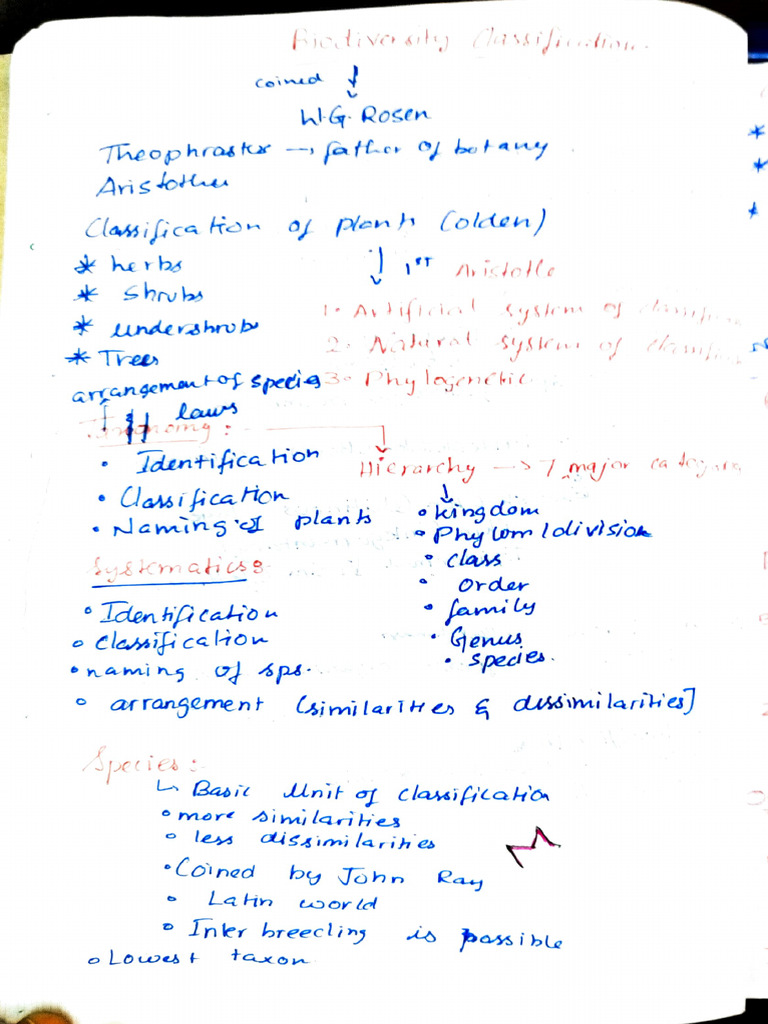 Biodiversity Classification
coined ↓
W.G. Rosen
Theophraster → father of botany
Aristother
Classification of plants (olden)
* herbs
↓ 1st Aristotle
* Shrubs
1. Artificial system of
* undershrubs
2. Natural system of
* Trees
3. Phylogenetic
arrangement of species
laws
Taxonomy:
• Identification
Hierarchy → 7 major
• Classification
• Kingdom
• Naming of plants
• Phylom/division
• class
Systematics:
• order
• Identification
• family
• Classification
• Genus
• naming of sps.
• species.
• arrangement (similarities & dissimilarities]
Species:
↳ Basic Unit of classification
• more similarities
• less dissimilarities
• Coined by John Ray
• Latin world
• Inter breecling is possible
• Lowest taxon